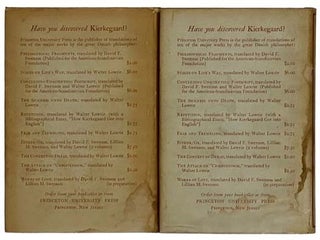 Have you discovered Kierkegaard?
Princeton University Press is the publisher of translations of
ten of the major works by the great Danish philosopher:
Philosophical Fragments, translated by David F.
Swenson (Published for the American-Scandinavian
Foundation) $2.00
Stages on Life's Way, translated by Walter Lowrie $6.00
Concluding Unscientific Postscript, translated by
David F. Swenson and Walter Lowrie (Published for
the American-Scandinavian Foundation) $6.00
The Sickness unto Death, translated by Walter
Lowrie
Repetition, translated by Walter Lowrie (with a
bibliographical essay, "How Kierkegaard Got into
English")
Fear and Trembling, translated by Walter Lowrie
Either/Or, translated by David F. Swenson, Lillian
M. Swenson, and Walter Lowrie (2 volumes)
The Concept of Dread, translated by Walter Lowrie
The Attack on "Christendom," translated by Walter
Lowrie
Works of Love, translated by David F. Swenson and
Lillian M. Swenson (in preparation)
Order from your bookseller or from
PRINCETON UNIVERSITY PRESS
Princeton, New Jersey
Have you discovered Kierkegaard?
Princeton University Press is the publisher of translations of
ten of the major works by the great Danish philosopher:
Philosophical Fragments, translated by David F.
Swenson (Published for the American-Scandinavian
Foundation) $2.00
Stages on Life's Way, translated by Walter Lowrie $6.00
Concluding Unscientific Postscript, translated by
David F. Swenson and Walter Lowrie (Published for
the American-Scandinavian Foundation) $6.00
The Sickness unto Death, translated by Walter
Lowrie
Repetition, translated by Walter Lowrie (with a
bibliographical essay, "How Kierkegaard Got into
English")
Fear and Trembling, translated by Walter Lowrie
Either/Or, translated by David F. Swenson, Lillian
M. Swenson, and Walter Lowrie (2 volumes)
The Concept of Dread, translated by Walter Lowrie
The Attack on "Christendom," translated by Walter
Lowrie
Works of Love, translated by David F. Swenson and
Lillian M. Swenson (in preparation)
Order from your bookseller or from
PRINCETON UNIVERSITY PRESS
Princeton, New Jersey